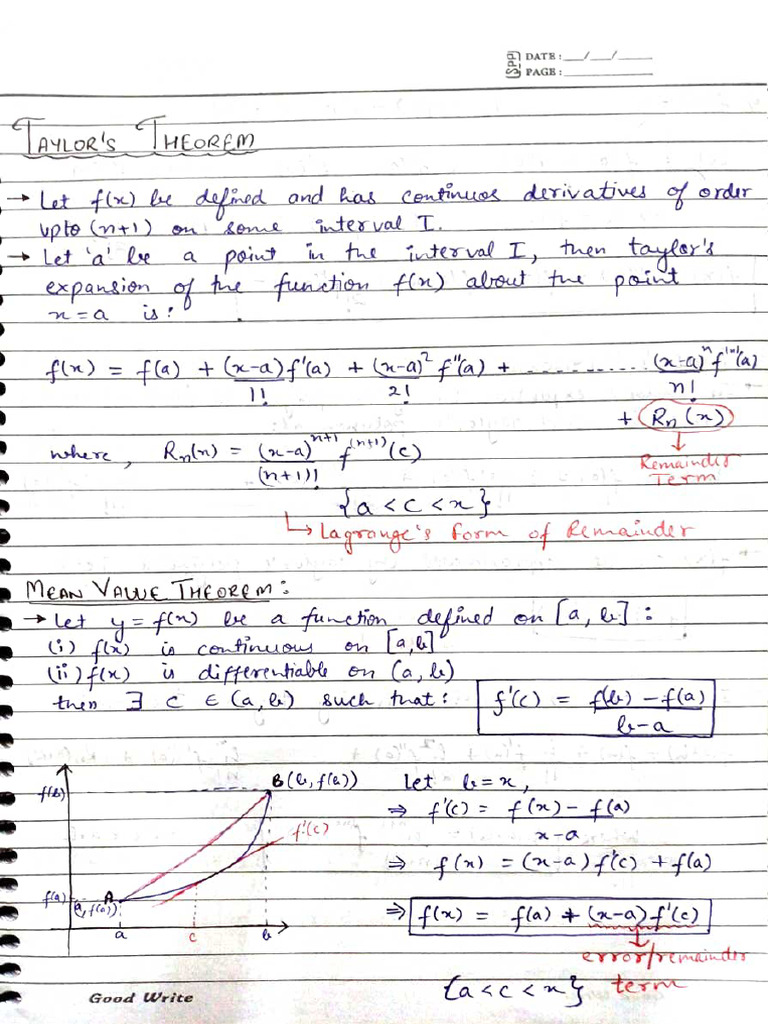 Spp DATE: __/__/____
PAGE: ________
TAYLOR'S THEOREM
→ Let f(x) be defined and has continuos derivatives of order
upto (n+1) on some interval I.
→ Let 'a' be a point in the interval I, then taylor's
expansion of the function f(x) about the point
x=a is:
f(x) = f(a) + (x-a)/1! f'(a) + (x-a)²/2! f''(a) + .......... (x-a)ⁿ/n! f⁽ⁿ⁾(a)
+ Rₙ(x)
↓
Remainder
Term
where, Rₙ(x) = (x-a)ⁿ⁺¹/(n+1)! f⁽ⁿ⁺¹⁾(c)
{a < c < x}
↳ Lagrange's form of Remainder
MEAN VALUE THEOREM:
→ Let y = f(x) be a function defined on [a, b] :
(i) f(x) is continuous on [a,b]
(ii) f(x) is differentiable on (a, b)
then ∃ c ∈ (a, b) such that: f'(c) = f(b) - f(a) / b-a
f(b)
B(b, f(b))
f'(c)
f(a)
A
(a, f(a))
a c b
Let b = x,
⇒ f'(c) = f(x) - f(a) / x-a
⇒ f(x) = (x-a) f'(c) + f(a)
⇒ f(x) = f(a) + (x-a) f'(c)
↓
error/remainder
term
{a < c < x}
Good Write